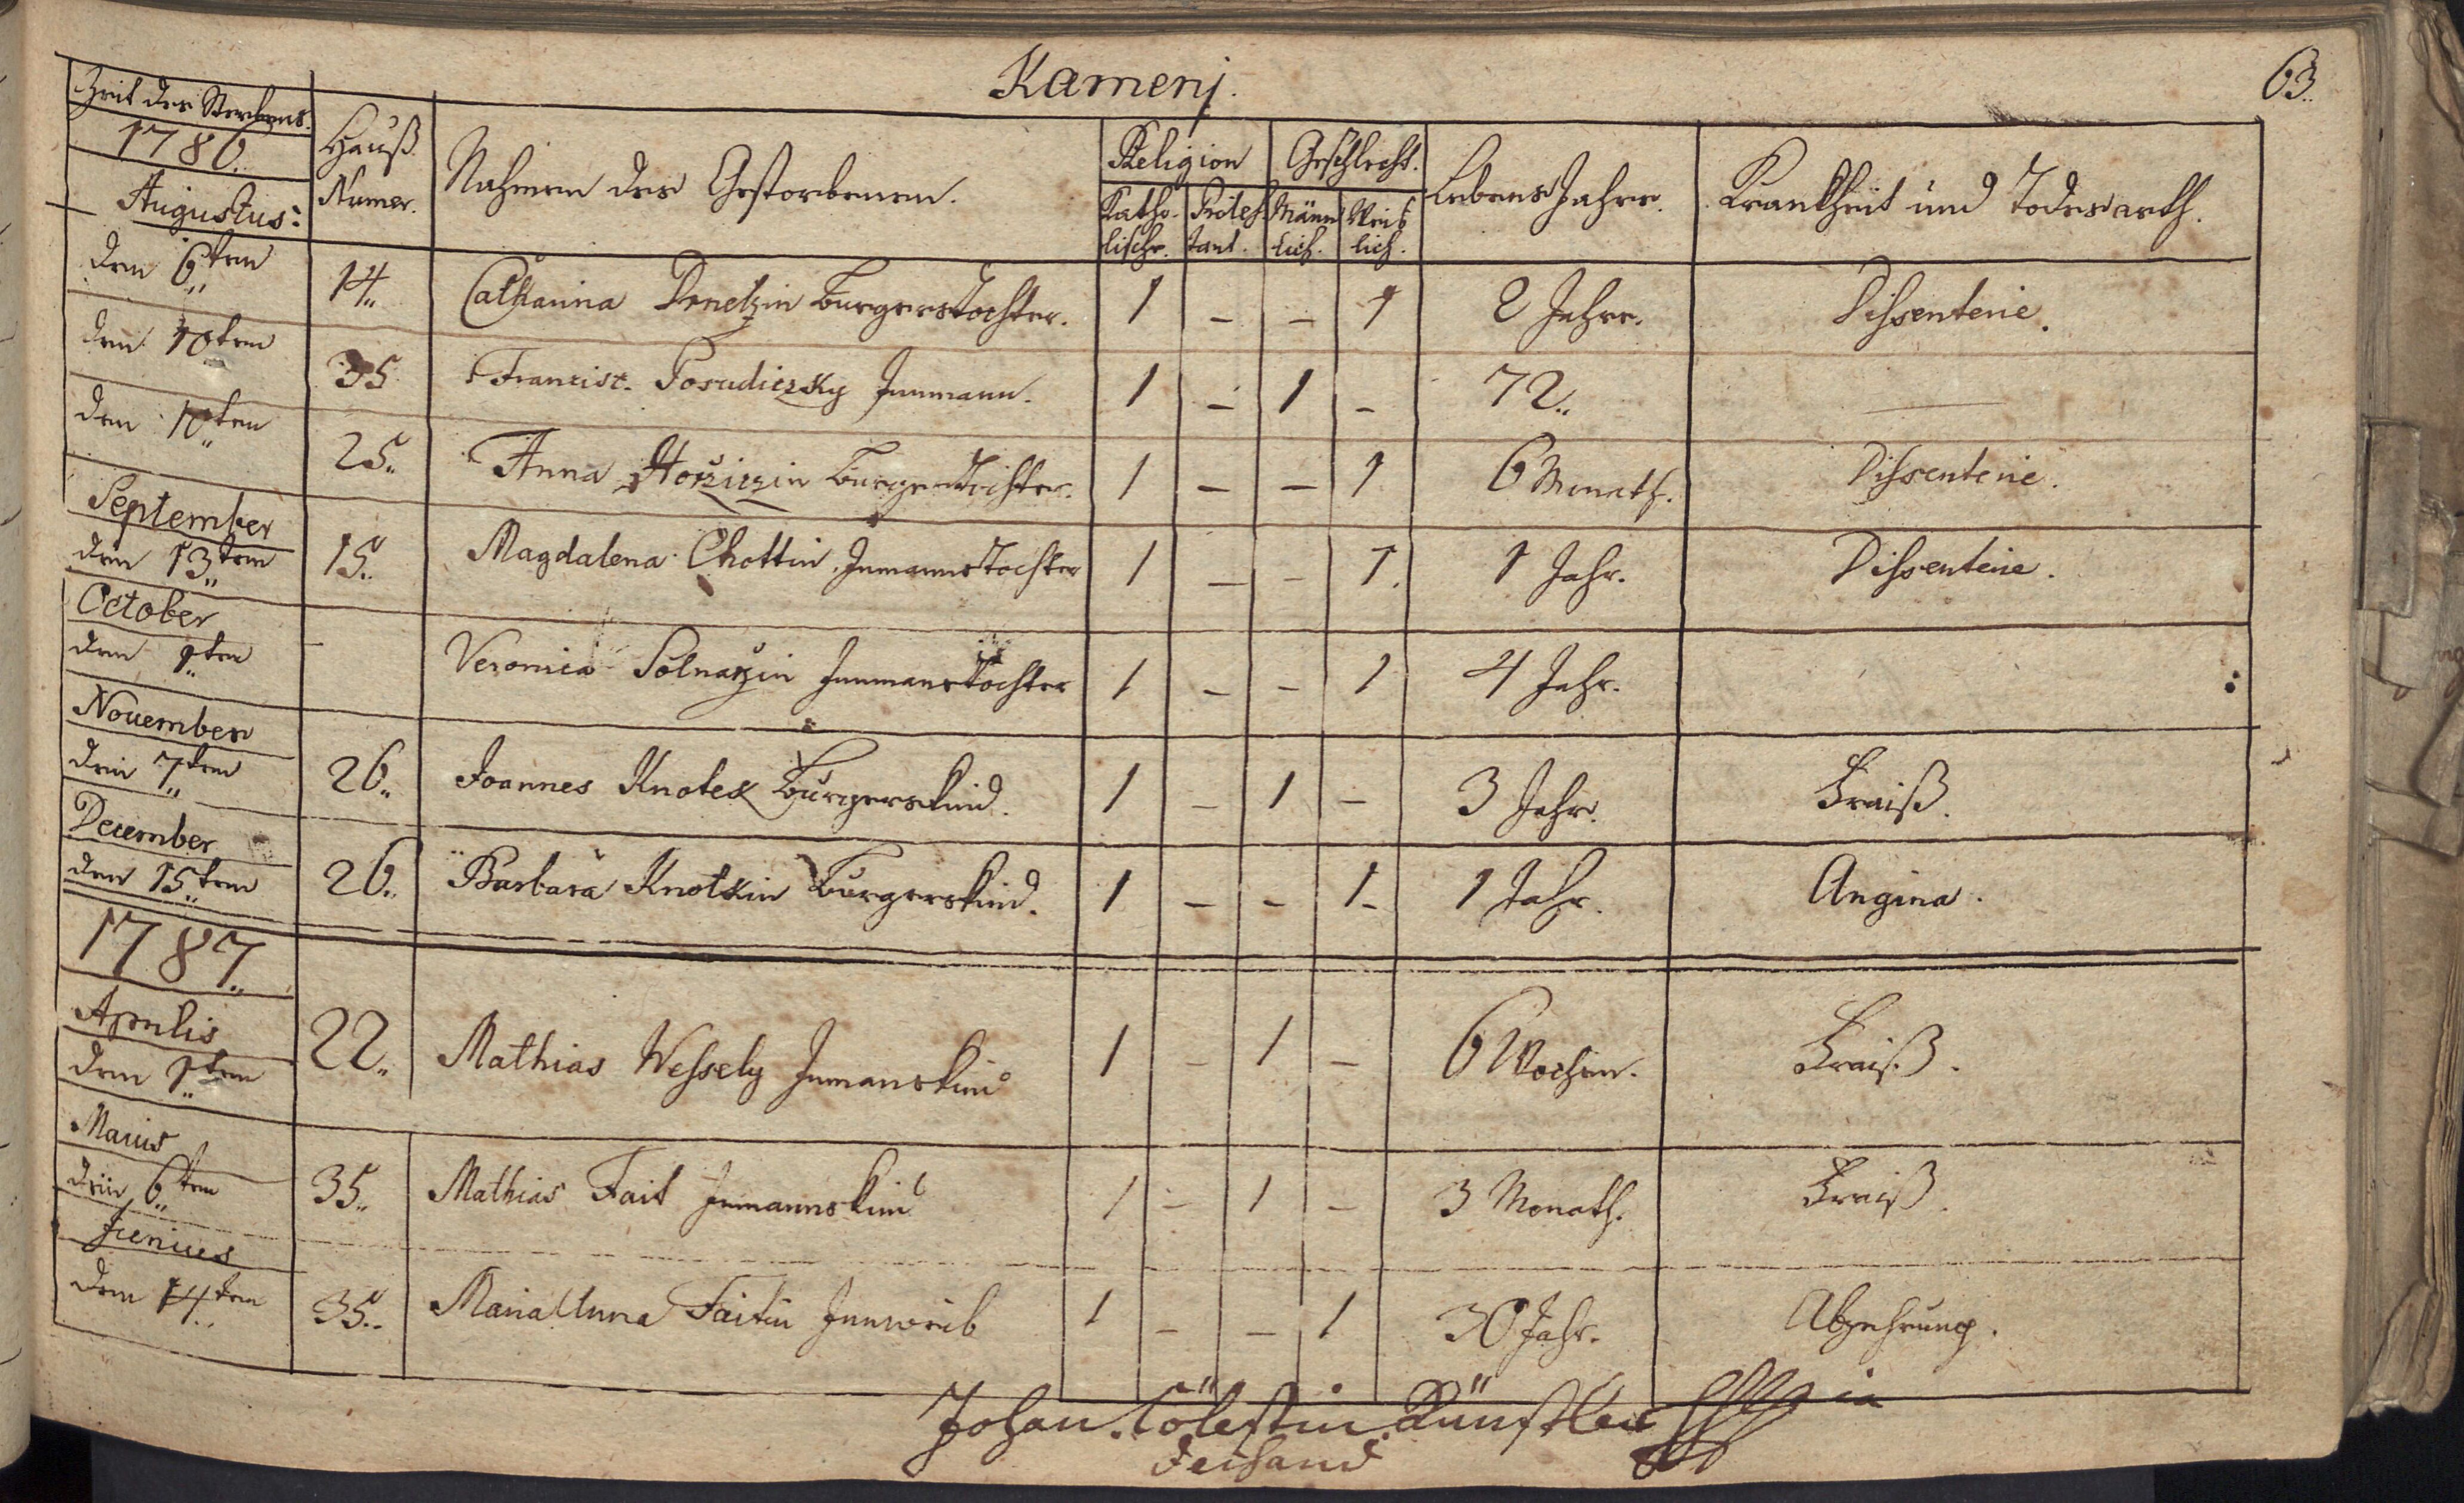 Kamenj.
63.
Zeit des Sterbens.
1786.
Hauß Numer.
Nahmen des Gestorbenen.
Religion
Katho-lische.
Protestant.
Geschlecht.
Männlich.
Weiblich.
Lebens Jahre.
Krankheit und Todesarth.
Augustus:
den 6ten 14. Catharina Burgerstochter. 1 – – 1 2 Jahre. Dissenterie.
den 10ten 35 Francisc. Posudiczky Innmann. 1 – 1 – 72.
den 10ten 25. Anna Horziczin Burgerstochter. 1 – – 1 6 Monath. Dissenterie.
September
den 13ten 15. Magdalena Chottin Inmannstochter 1 – – 1. 1 Jahr. Dissenterie.
October
den 1ten – Veronica Solnarzin Innmanstochter 1 – – 1 4 Jahr.
November
den 7ten 26. Joannes Knotek Burgerskind. 1 – 1 – 3 Jahr. Fraiß.
December
den 15ten 26. Barbara Knotkin Burgerskind. 1 – – 1– 1 Jahr. Angina.
1787.
Aprilis
den 1ten 22. Mathias Wessely Inmanskind 1 – 1 – 6 Wochen. Fraiß.
Maius
den 6ten 35. Mathias Fait Inmannskind 1 – 1 – 3 Monath. Fraiß.
Junius
den 14ten 35. Maria Anna Faitin Innweib 1 – – 1 30 Jahr. Abzehrung.
Johan. Cölestin Künstler
Dechand